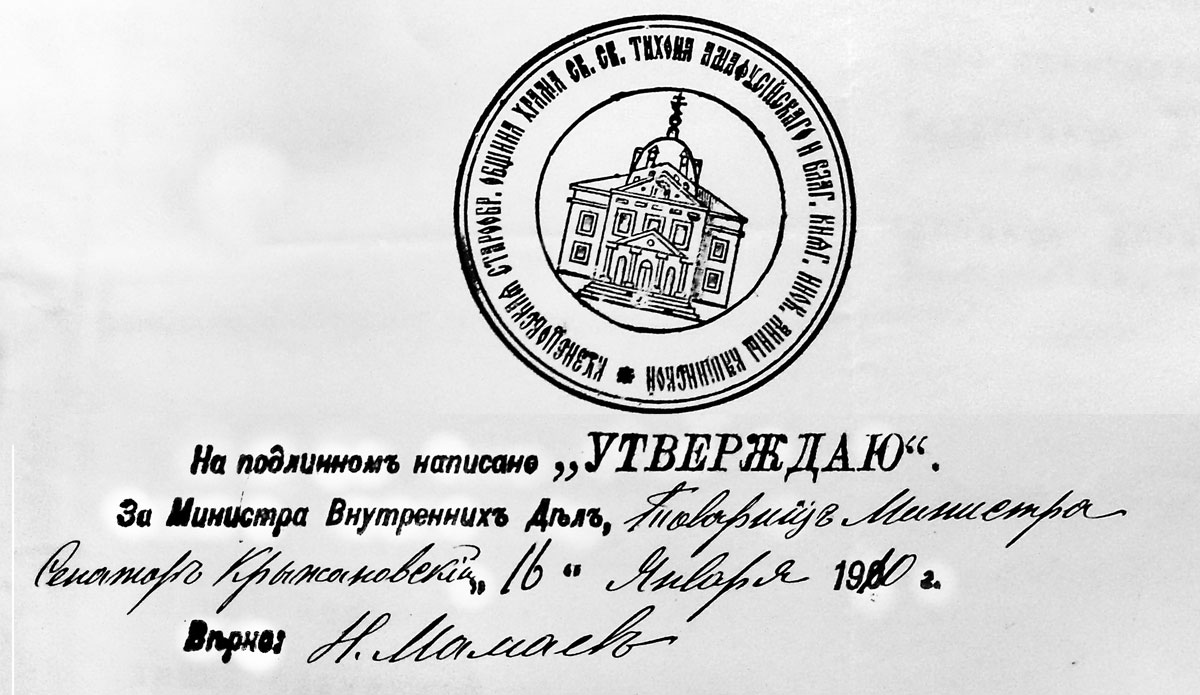 КУЗНЕЦОВСКАЯ СТАРООБР. ОБЩИНА ХРАМА СВ. СВ. ТИХОНА АМАФУСІЙСКАГО И БЛАГ. КНЯГ. ИНОК. АННЫ КАШИНСКОЙ *
На подлинномъ написано „УТВЕРЖДАЮ“.
За Министра Внутреннихъ Дѣлъ, Товарищъ Министра
Сенаторъ Крыжановскій „16“ Января 1910 г.
Вѣрно: Н. Мамаевъ